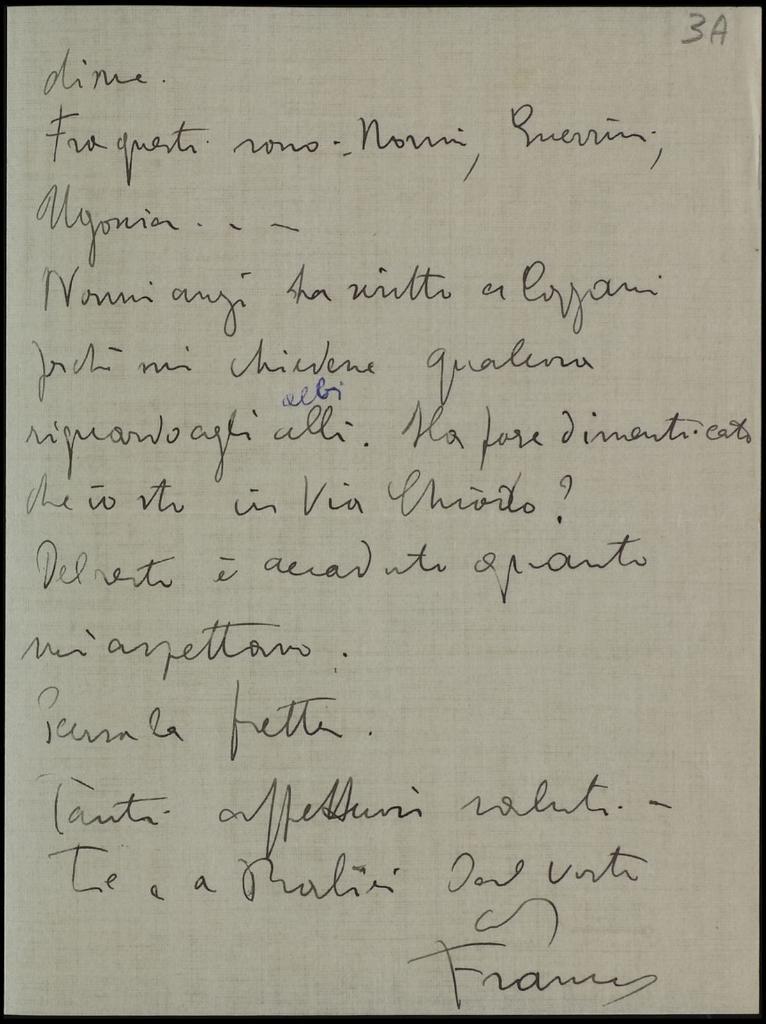 3A
dirne.
Fra questi sono: Nonni, Guerrini,
Ugonia . . -
Nonni anzi ha scritto a Cozzani
perché mi chiedesse qualcosa
albi
riguardo agli albi. Ha forse dimenticato
che io sto in Via Chiodo?
Del resto è accaduto quanto
mi aspettavo.
Scusa la fretta.
Tanti affettuosi saluti -
Te e a dal vostro
Franco